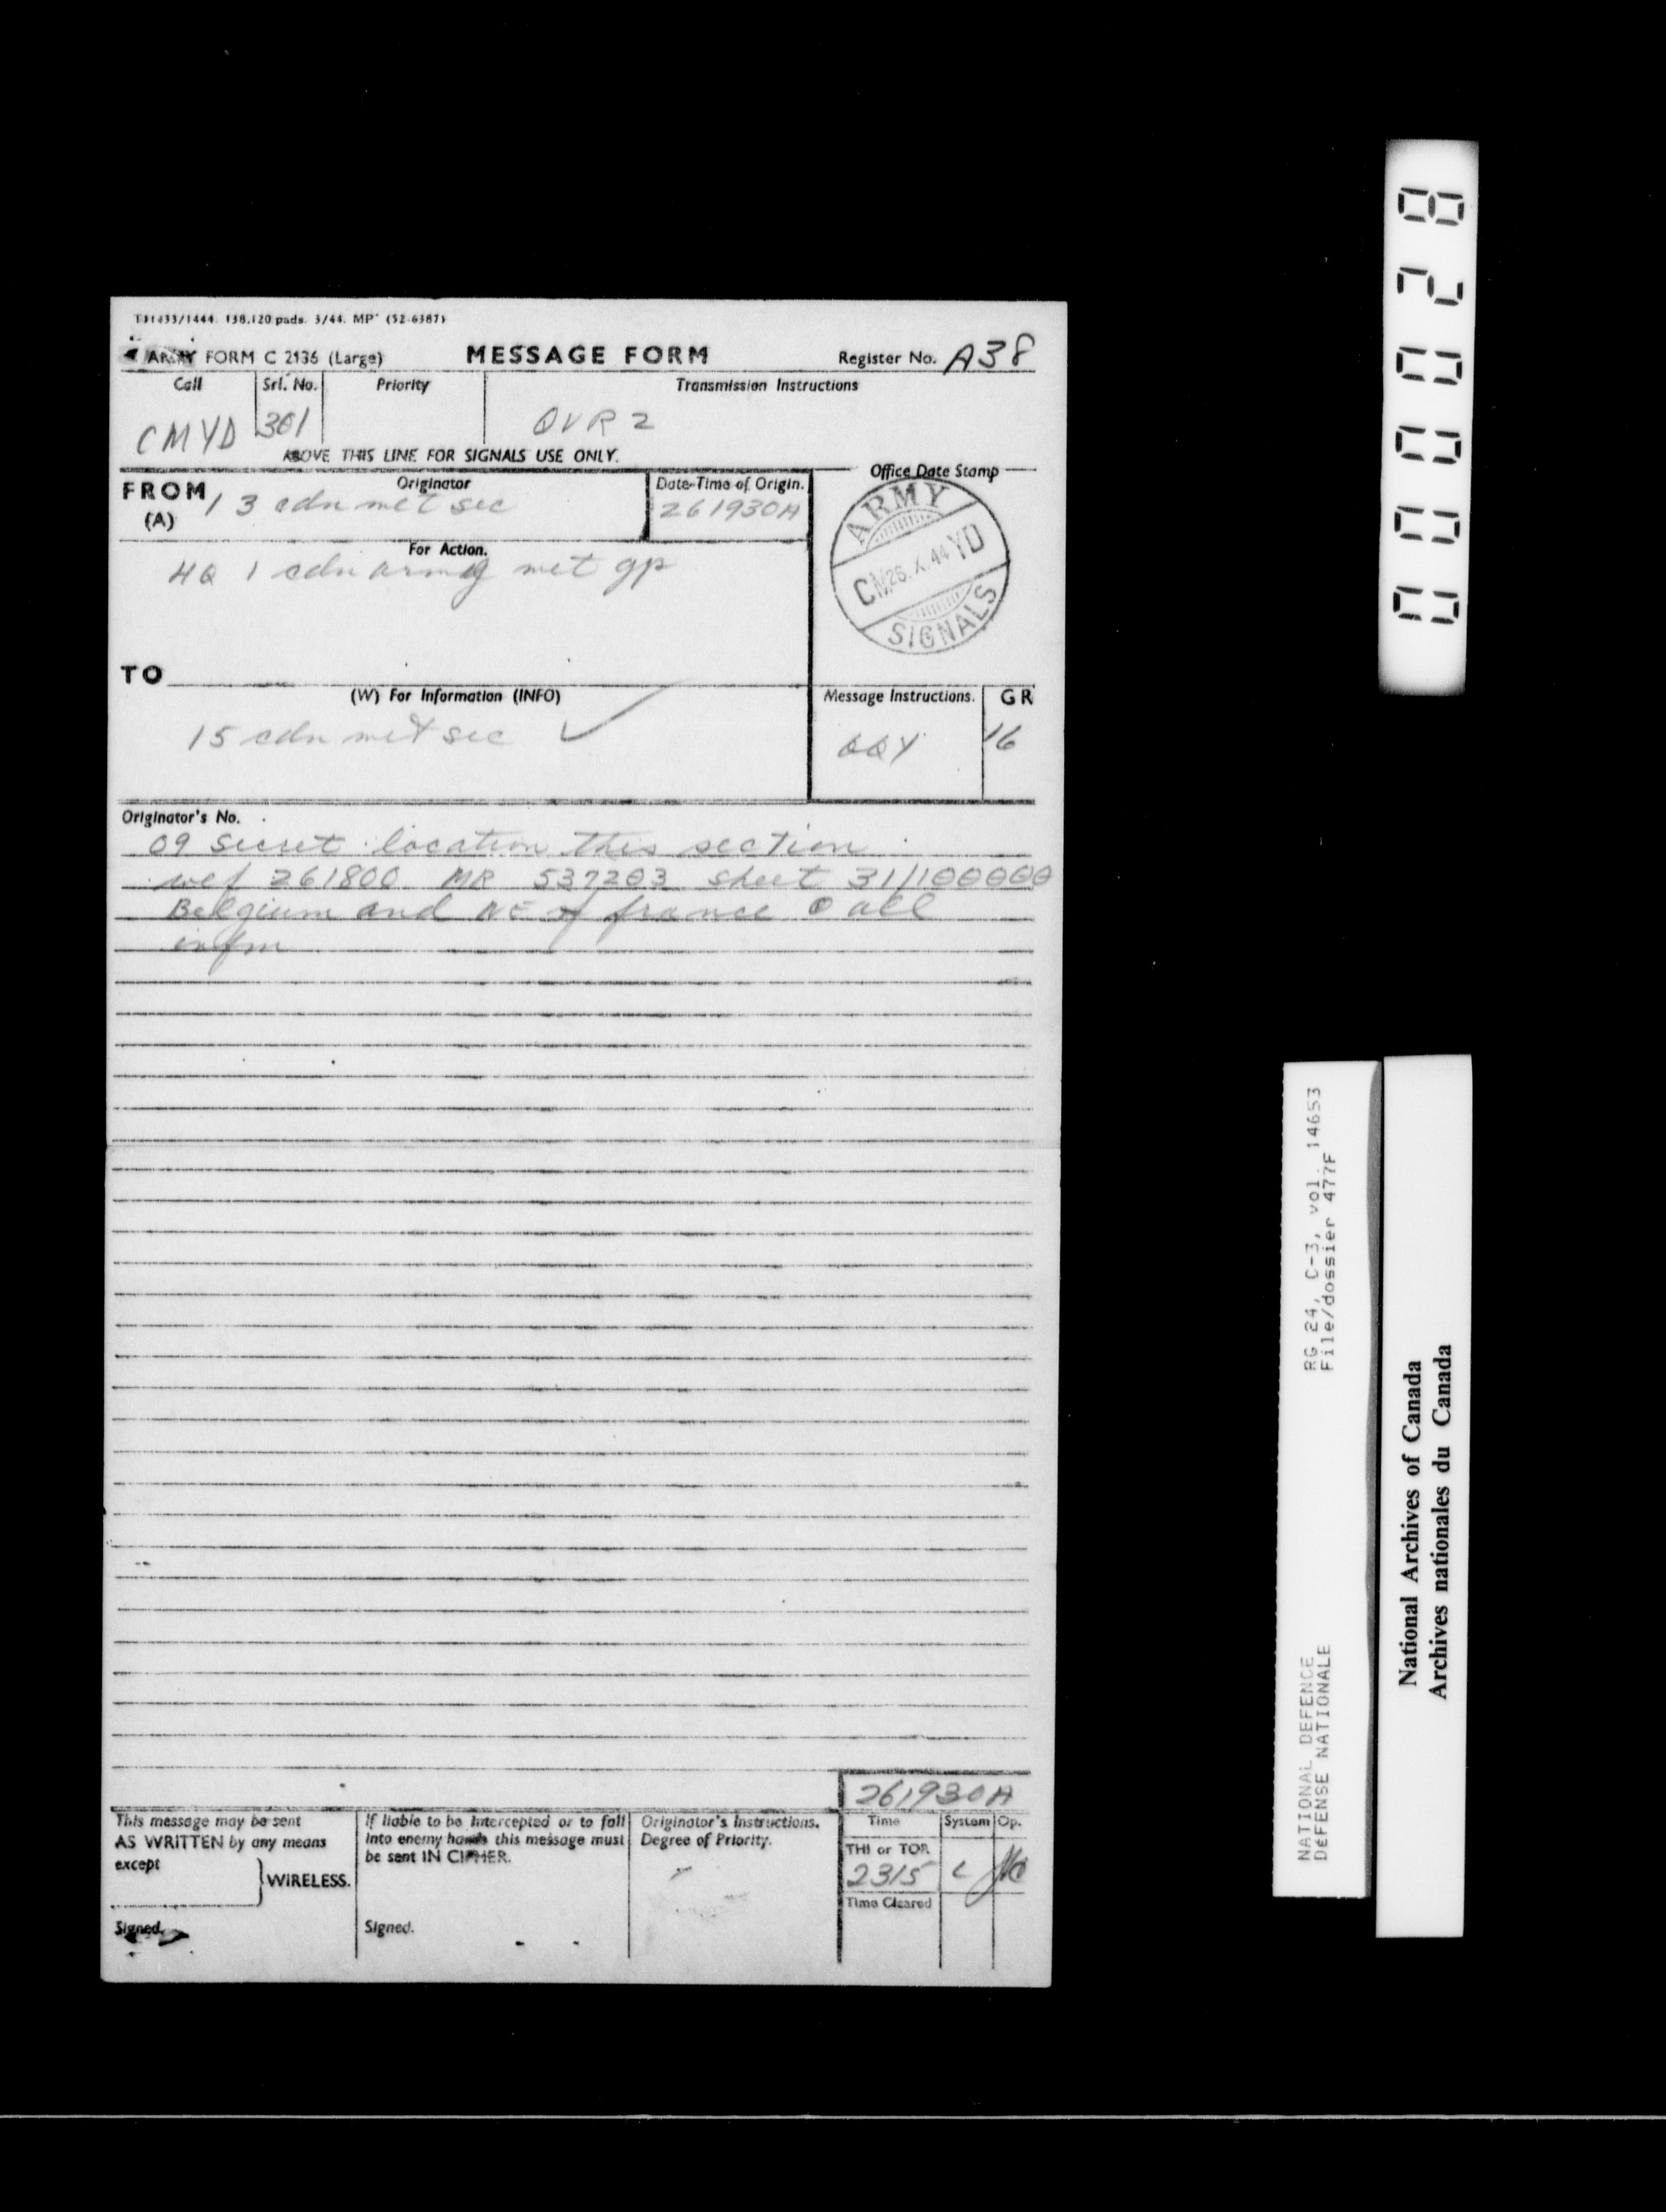 T31433/1444. 138,120 pads. 3/44. MP. (52-6387)
ARMY FORM C 2136 (Large) MESSAGE FORM Register No. A38
Call Srl. No. Priority Transmission Instructions
CMYD 301 QVR 2
ABOVE THIS LINE FOR SIGNALS USE ONLY.
FROM (A) Originator Date-Time of Origin. Office Date Stamp
13 cdn met sec 261930A
ARMY
CM 26. X. 44 YD
SIGNALS
For Action.
HQ 1 cdn army met gp
TO
(W) For Information (INFO) Message Instructions. GR
15 cdn met sec QQY 16
Originator's No.
09 secret location this section
wef 261800 MR 537203 sheet 31/100000
Belgium and NE of france O all
infm
261930A
This message may be sent
AS WRITTEN by any means
except
WIRELESS.
Signed.
If liable to be intercepted or to fall
into enemy hands this message must
be sent IN CIPHER.
Signed.
Originator's Instructions.
Degree of Priority.
Time System Op.
THI or TOR
2315 L
Time Cleared
00028
RG 24, C-3, vol. 14653
File/dossier 477F
NATIONAL DEFENCE
DéFENSE NATIONALE
National Archives of Canada
Archives nationales du Canada